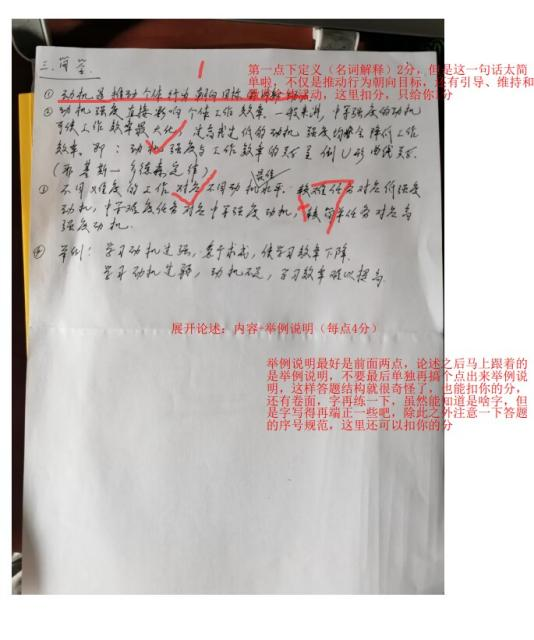 三.简答.
1
第一点下定义(名词解释)2分,但是这一句话太简
单啦,不仅是推动行为朝向目标,还有引导、维持和
运动,这里扣分,只给你1分
① 动机是推动个体行为朝向目标
② 动机强度直接影响个体工作效率.一般来讲,中等强度的动机
可使工作效率最大化,过高或过低的动机强度均会降低工作
效率.即:动机强度与工作效率的关系呈倒U形曲线关系.
(耶基斯—多德森定律)
最佳
③ 不同难度的工作对应不同动机水平.较难任务对应低强度
动机,中等难度任务对应中等强度动机,较简单任务对应高
强度动机.
+7
④ 举例:学习动机过强,急于求成,使学习效率下降.
学习动机过弱,动机不足,学习效率难以提高.
展开论述:内容+举例说明(每点4分)
举例说明最好是前面两点,论述之后马上跟着的
是举例说明,不要最后单独再搞个点出来举例说
明,这样答题结构就很奇怪了,也能扣你的分,
还有卷面,字再练一下,虽然能知道是啥字,但
是字写得再端正一些吧,除此之外注意一下答题
的序号规范,这里还可以扣你的分